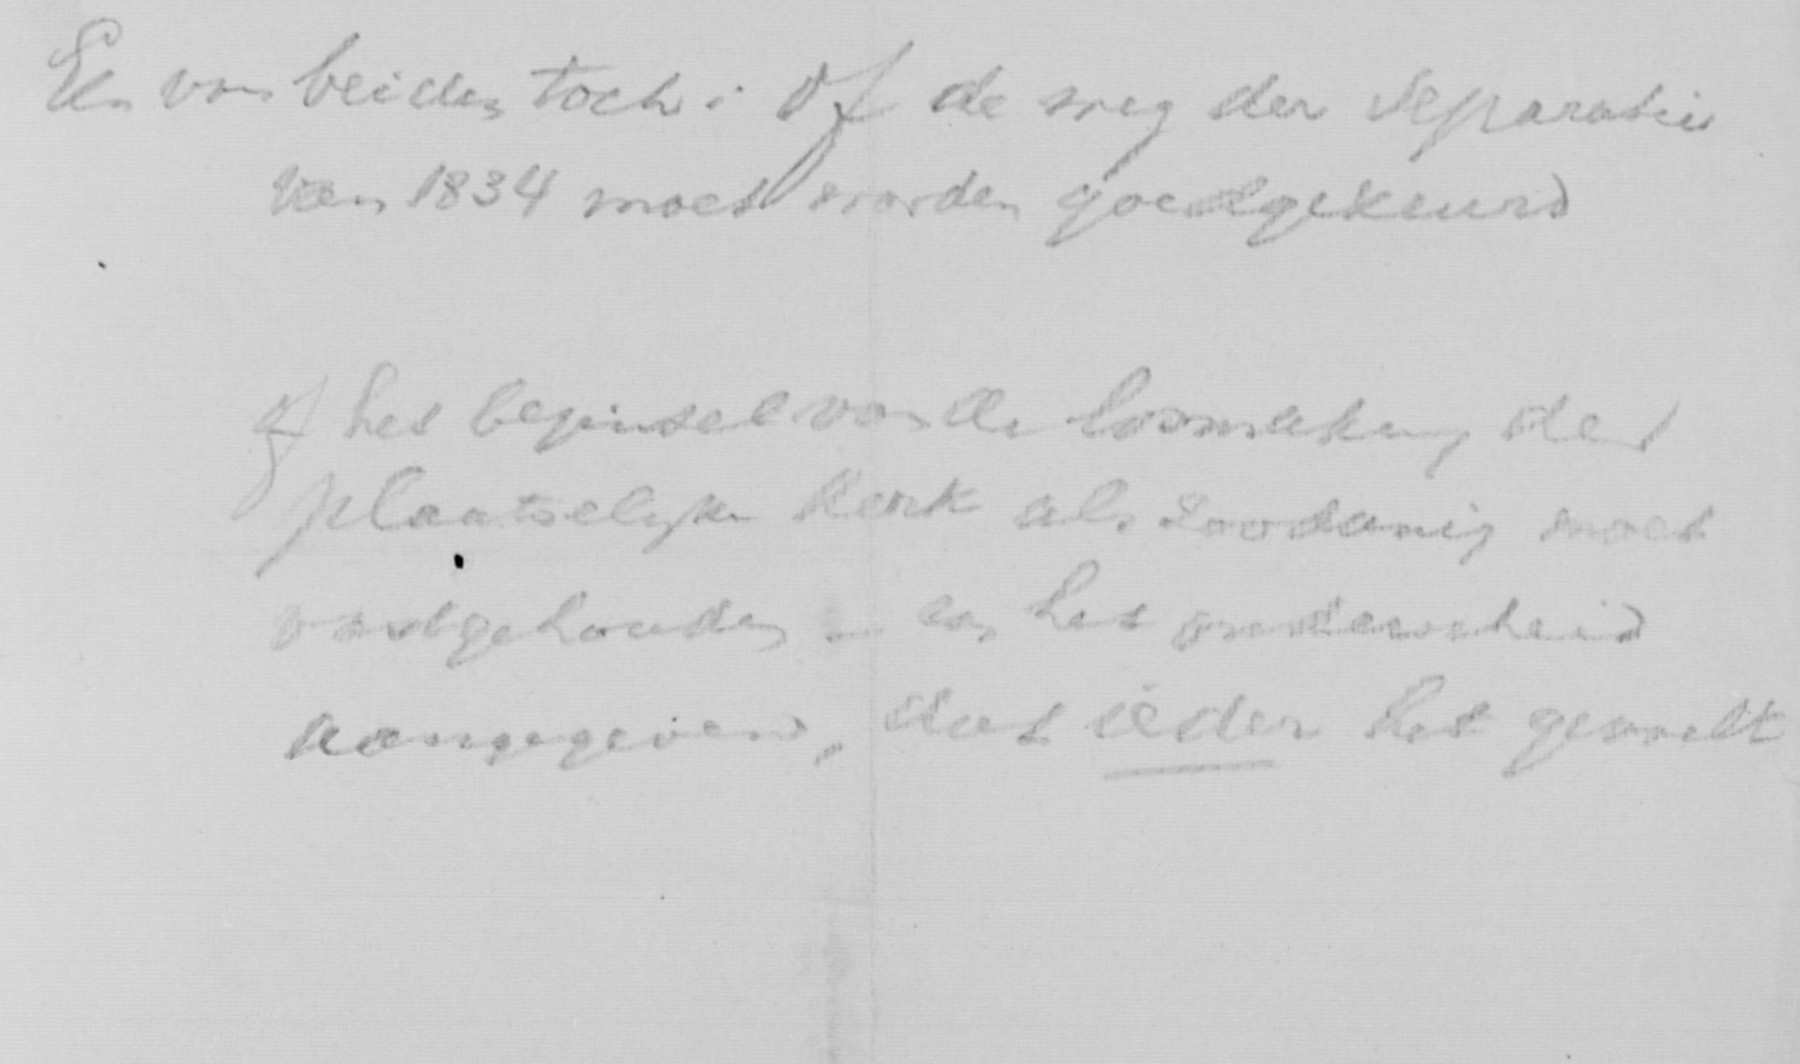 Eén van beiden toch: òf de weg der separatie
van 1834 moest worden goedgekeurd
òf het beginsel van de losmaking der
plaatselijke kerk als zoodanig moest
vastgehouden – en het onderscheid
aangegeven, dat ieder het gevoelt